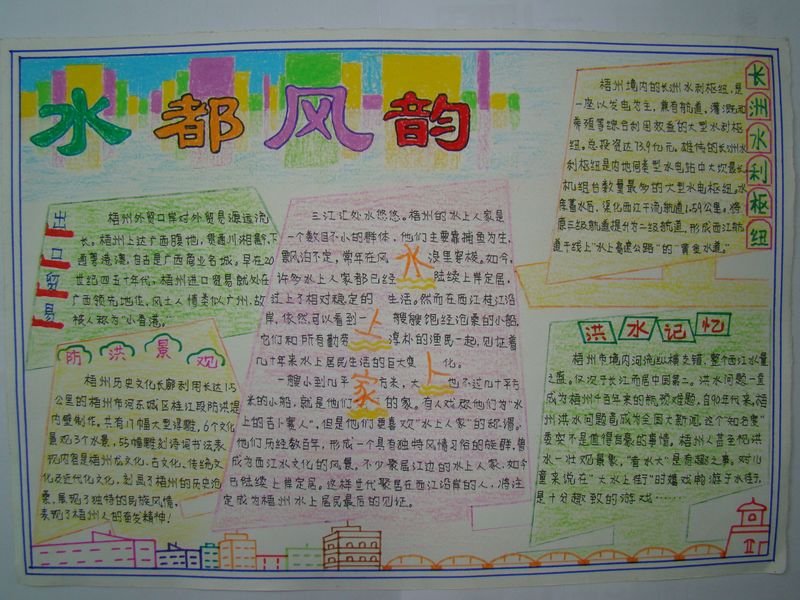 水都风韵
出口贸易
梧州外贸口岸对外贸易源远流
长。梧州上达广西腹地，贯通川湘黔，下
通粤港澳，自古是广西商业名城，早在20
世纪四五十年代，梧州进口贸易就处在
广西领先地位，风土人情类似广州，故
被人称为“小香港。”
防洪景观
梧州历史文化长廊利用长达1.5
公里的梧州市河东城区桂江段防洪堤
内壁制作。共有17幅大型浮雕，6个文化
景观3个水景，55幅雕刻诗词书法表
现内容是梧州龙文化、古文化、传统文
化及近代化文化，刻画了梧州的历史沧
桑，展现了独特的民族风情，
表现了梧州人的奋发精神！
三江汇处水悠悠。梧州的水上人家是
一个数目不小的群体，他们主要靠捕鱼为生，
飘泊不定，常年在风浪里穿梭。如今，
许多水上人家都已经陆续上岸定居，
过上了相对稳定的生活。然而在西江桂江沿
岸，依然可以看到一艘艘饱经沧桑的小船，
它们和所有勤劳淳朴的渔民一起，见证着
几十年来水上居民生活的巨大变化。
水上人家
一艘小到几平方米，大也不过几十平方
米的小船，就是他们的家。有人戏称他们为“水
上的吉卜赛人”，但是他们更喜欢“水上人家”的称谓。
他们历经数百年，形成一个具有独特风情习俗的族群，曾
成为西江水文化的风景，不少聚居江边的水上人家，如今
已陆续上岸定居，这样世代聚居在西江沿岸的人，将注
定成为梧州水上居民最后的见证。
长洲水利枢纽
梧州境内的长洲水利枢纽，是
一座以发电为主，兼有航道，灌溉和
养殖等综合利用效益的大型水利枢
纽。总投资达73.9亿元。雄伟的长洲水
利枢纽是内地同类型水电站中大坝最长，
机组台数量最多的大型水电枢纽。水
库蓄水后，渠化西江干流航道159公里。将
原三级航道提升为二级航道，形成西江航
道干线上“水上高速公路”的“黄金水道。”
洪水记忆
梧州市境内河流纵横支错，整个西江水量
之盛。仅次于长江而居中国第二。洪水问题一直
成为梧州千百年来的航频难题，自90年代来，梧
州洪水问题高成为全国大新闻，这个“知名度”
委实不是值得自豪的事情，梧州人甚至把洪
水一壮观景象，“看水大”是有趣之事。对儿
童来说在“大水上街”时嬉戏畅游于水街，
是十分趣致的游戏……